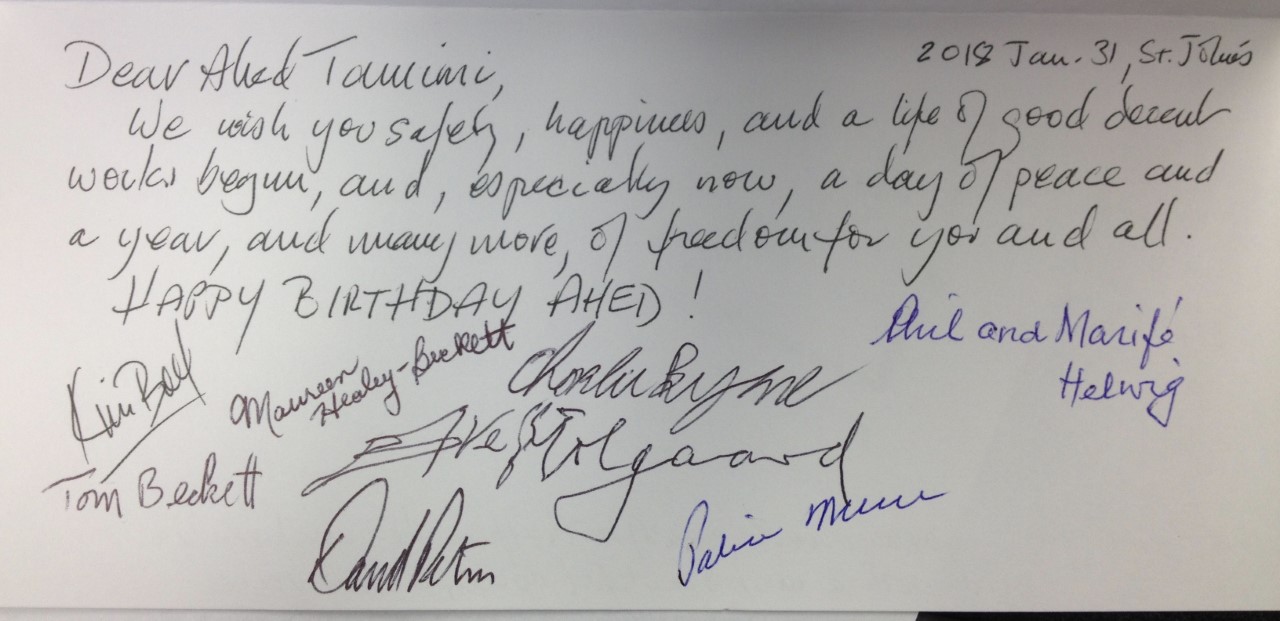 2018 Jan. 31, St. John's
Dear Ahed Tamimi,
We wish you safety, happiness, and a life of good decent
works begun, and, especially now, a day of peace and
a year, and many more, of freedom for you and all.
HAPPY BIRTHDAY AHED!
Phil and Marifé
Helwig
Maureen
Healey-Beckett
Tom Beckett